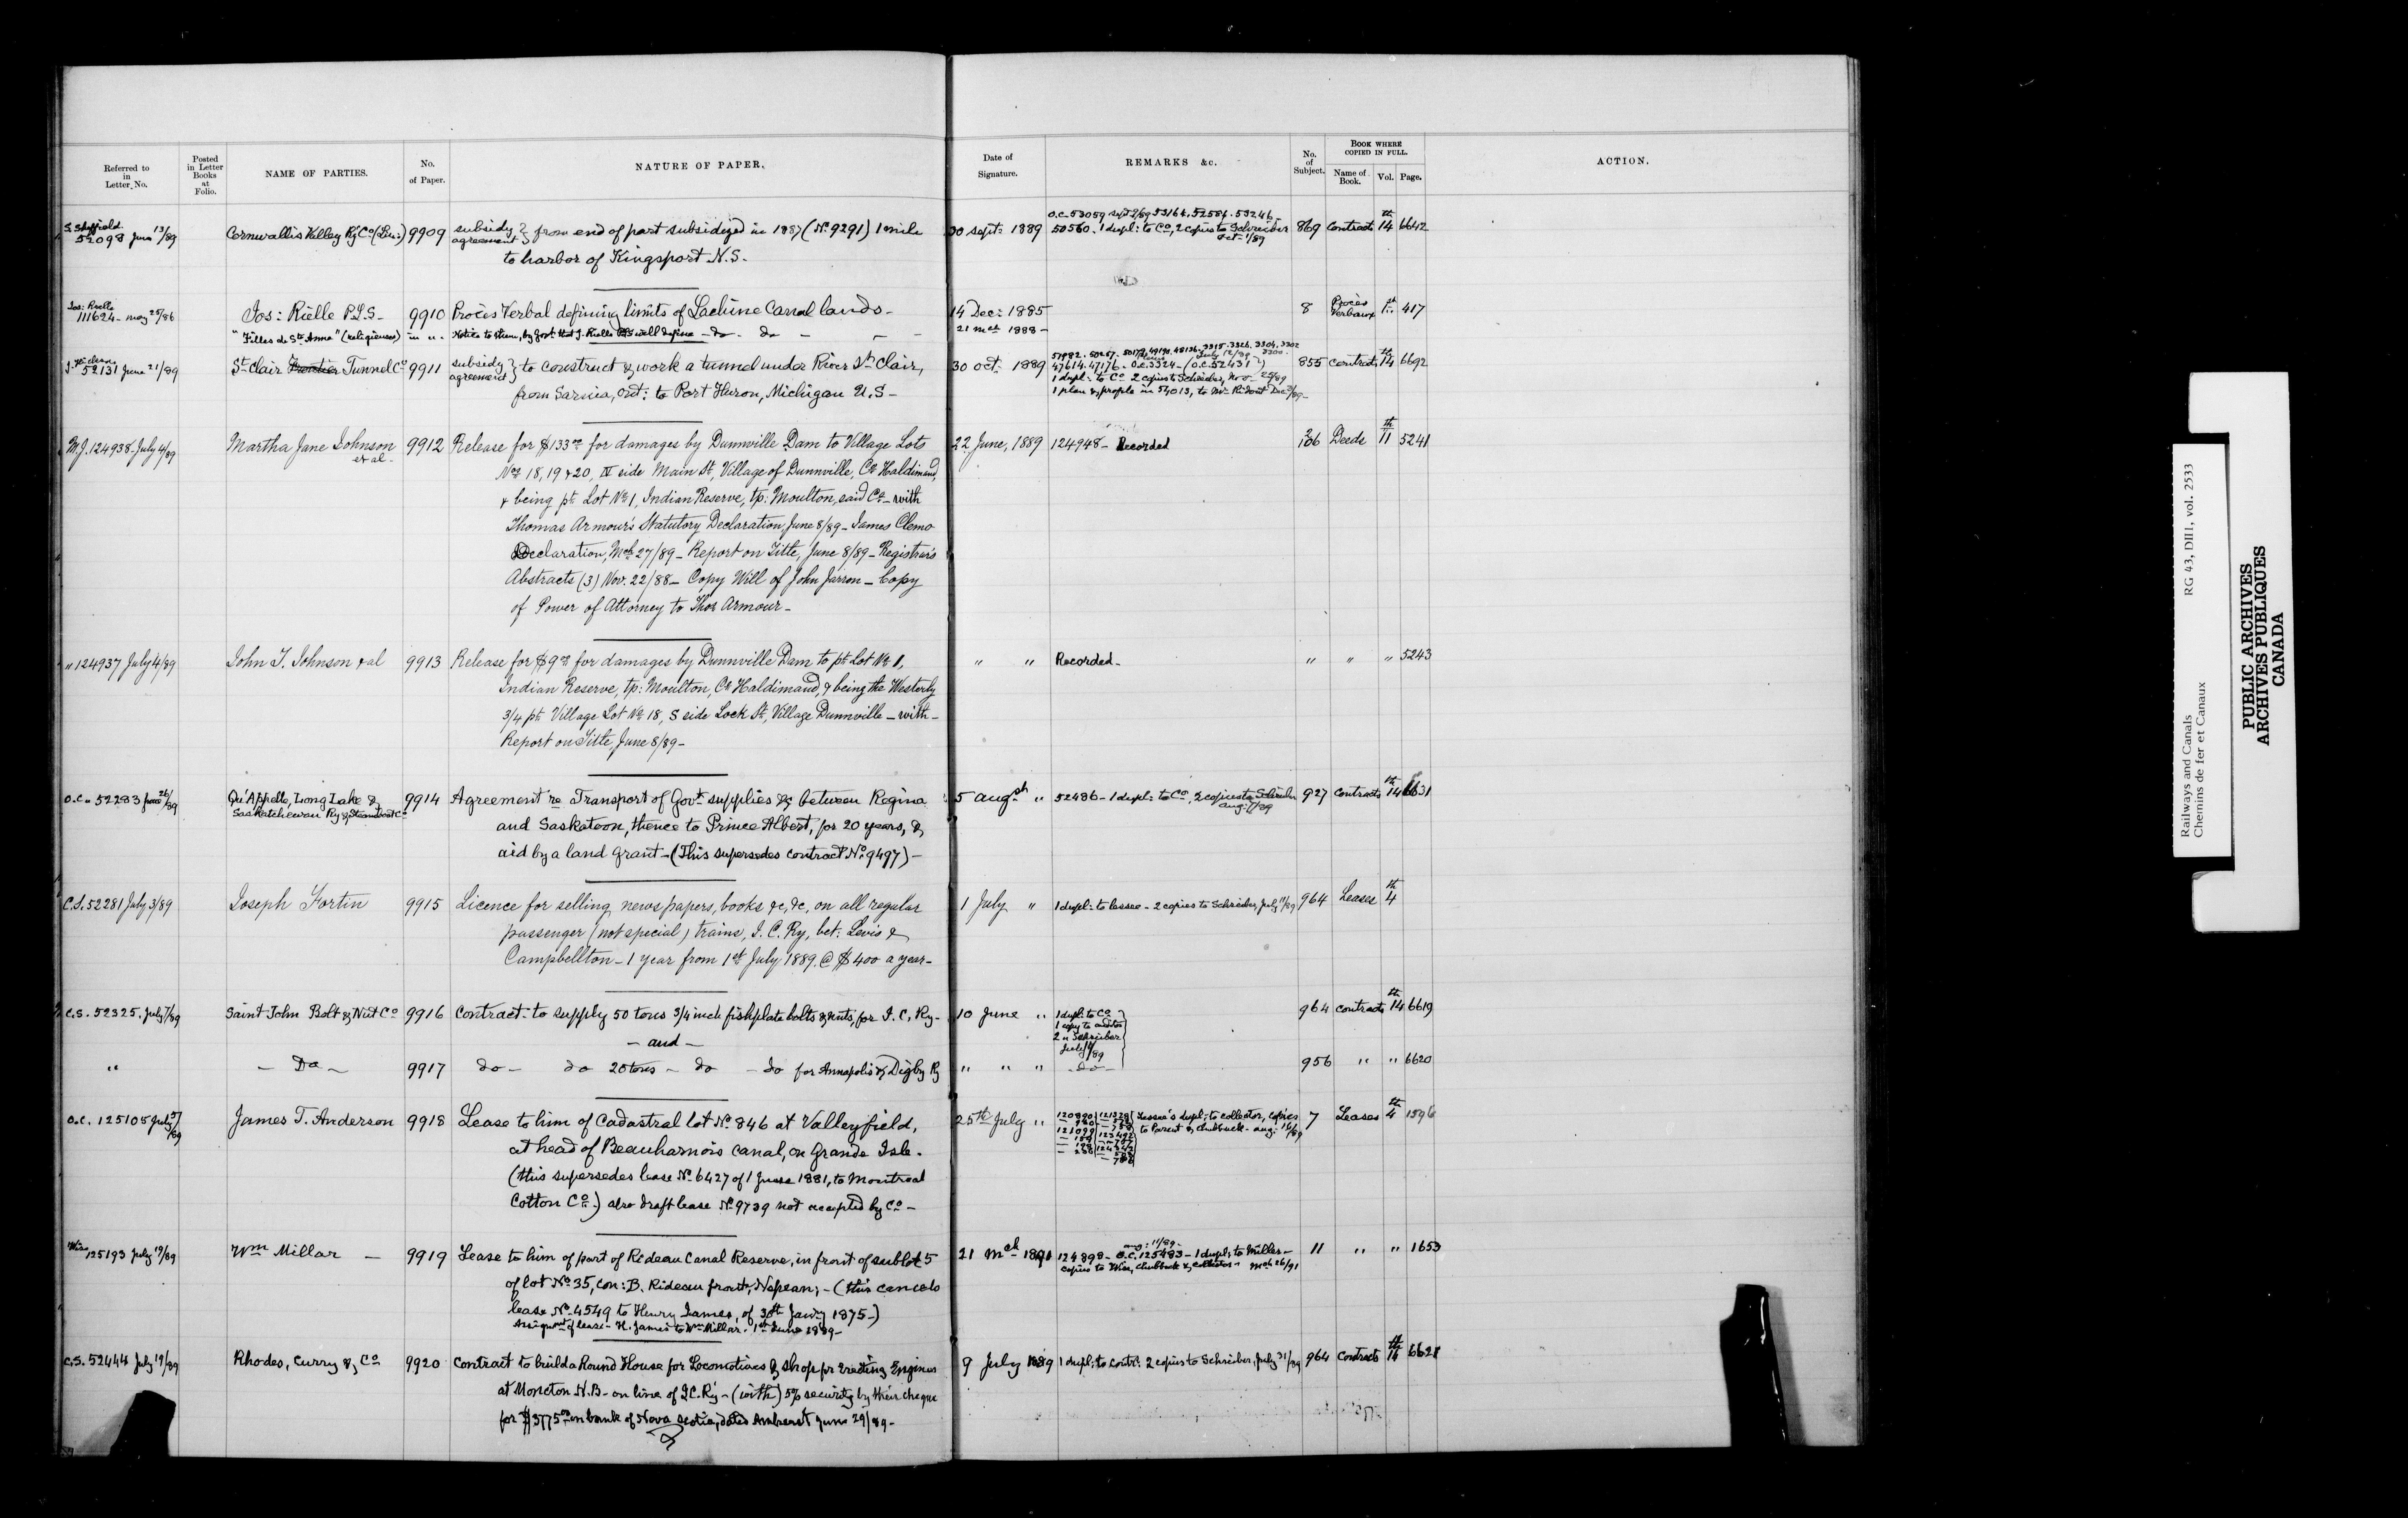 Referred to in Letter No.
Posted in Letter Books at Folio.
NAME OF PARTIES.
No. of Paper.
NATURE OF PAPER.
Date of Signature.
REMARKS &c.
No. of Subject.
BOOK WHERE COPIED IN FULL.
Name of Book.
Vol.
Page.
ACTION.
S. Sheffield
52098 June 13/89 Cornwallis Valley Ry Co (Lim:) 9909 subsidy agreement } from end of part subsidized in 1887 (No 9291) 1 mile 30 Sept: 1889 O.C. 53059 Sept 2/89 53164. 52584. 53246 869 Contracts 14th 6642
to harbor of Kingsport N.S. 50560. 1 dupl: to Co, 2 copies to Schreiber Oct 1/89
Jos: Rielle
111624 - May 25/86 Jos: Rielle P.L.S. 9910 Procès Verbal defining limits of Lachine Canal lands - 14 Dec: 1885 8 Procès Verbaux 1st 417
"Filles de Ste Anne" (religieuses) in ". Notice to them, by Govt that J. Rielle PLS will define - do - do - 21 Mch 1888 -
52131 June 21/89 St Clair Frontier Tunnel Co 9911 subsidy agreement } to construct & work a tunnel under River St Clair, 30 Oct: 1889 855 Contracts 14th 6692
from Sarnia, Ont: to Port Huron, Michigan U.S - 47614. 47176 - O.C. 3324 - (O.C. 52431)
1 dupl: to Co 2 copies to Schreiber, Nov - 25/89
1 plan & profile in 54013, to Mr Ridout Dec
M.J. 124938 July 4/89 Martha Jane Johnson et al - 9912 Release for $133 for damages by Dunnville Dam to Village Lots 22 June, 1889 124948 - Recorded 206 Deeds 11th 5241
Nos 18, 19 & 20, N side Main St, Village of Dunnville, Co Haldimand,
& being pt Lot No 1, Indian Reserve, tp: Moulton, said Co - with
Thomas Armour's Statutory Declaration, June 8/89 - James Clemo
Declaration, Mch 27/89 - Report on Title, June 8/89 - Registrar's
Abstracts (3) Nov. 22/88 - Copy Will of John Jarron - Copy
of Power of Attorney to Thos Armour -
" 124937 July 4/89 John T. Johnson & al 9913 Release for $9 for damages by Dunnville Dam to pt Lot No 1, " " Recorded - " " " 5243
Indian Reserve, tp: Moulton, Co Haldimand, & being the Westerly
3/4 pt Village Lot No 18, S side Lock St, Village Dunnville - with -
Report on Title, June 8/89 -
O.C. 52283 June 26/89 Qu'Appelle, Long Lake & Saskatchewan Ry & Steamboat Co 9914 Agreement re Transport of Govt supplies &c between Regina 5 Augst " 52486 - 1 dupl: to Co, 2 copies to Schreiber Aug: 7/89 927 Contracts 14th 6631
and Saskatoon, thence to Prince Albert, for 20 years, &
aid by a land grant - (This supersedes contract No: 9497) -
C.S. 52281 July 3/89 Joseph Fortin 9915 Licence for selling newspapers, books &c, &c, on all regular 1 July " 1 dupl: to lessee - 2 copies to Schreiber, July 11/89 964 Leases 4th
passenger (not special) trains, I. C. Ry, bet: Levis &
Campbellton - 1 year from 1st July 1889 @ $400 a year -
C.S. 52325. July 7/89 Saint John Bolt & Nut Co 9916 Contract - to supply 50 tons 3/4 inch fishplate bolts & nuts, for I. C. Ry - 10 June " 1 dupl: to Co 964 Contracts 14th 6619
- and - 1 copy to auditor
2 " Schreiber
July /89
" - Do - 9917 do - do 20 tons - do - do for Annapolis & Digby Ry " " " - do - 956 " " 6620
O.C. 125105 July /89 James T. Anderson 9918 Lease to him of Cadastral lot No 846 at Valleyfield, 25th July " Lessee's dupl: to collector, copies to Parent & Chubbuck - Aug: 16/89 7 Leases 4th 1596
at head of Beauharnois Canal, on Grande Isle.
(this supersedes lease No 6427 of 1 June 1881, to Montreal
Cotton Co.) also draft lease No 9739 not accepted by Co -
Wise 125193 July 19/89 Wm Millar - 9919 Lease to him of part of Rideau Canal Reserve, in front of sublot 5 21 Mch 1891 124898 - O.C. 125483 Aug: 11/89 - 1 dupl: to Miller - 11 " " 1653
of lot No 35, Con: B. Rideau front, Nepean; - (this cancels copies to Wise, Chubbuck & Collector - Mch 26/91
lease No 4549 to Henry James, of 30th Jany 1875 -)
Assignmt of lease - H. James to Wm Millar. 1st June 1889 -
C.S. 52444 July 19/89 Rhodes, Curry & Co 9920 Contract to build a Round House for Locomotives & shop for Erecting Engines 9 July 1889 1 dupl: to contr: 2 copies to Schreiber, July 31/89 964 Contracts 14th 6621
at Moncton N.B - on line of I.C. Ry - (with) 5% security by their cheque
for $3775 on bank of Nova Scotia, dated Amherst June 29/89 -
Railways and Canals RG 43, DIII, vol. 2533
Chemins de fer et Canaux
PUBLIC ARCHIVES
ARCHIVES PUBLIQUES
CANADA